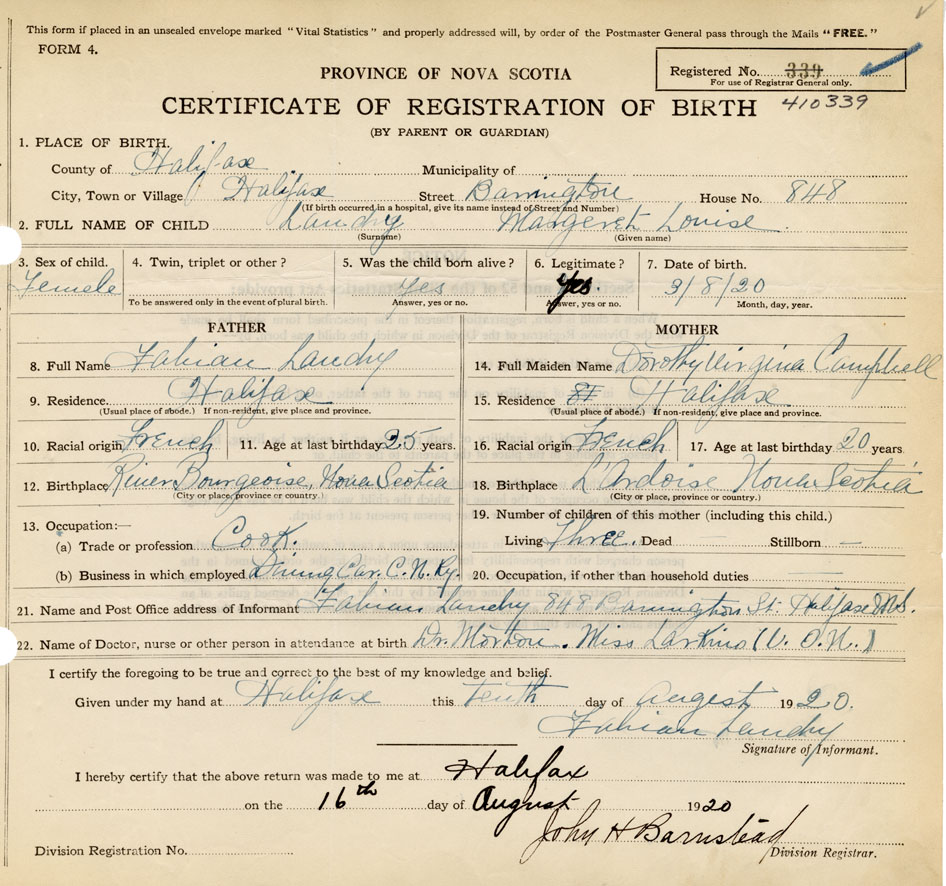 This form if placed in an unsealed envelope marked "Vital Statistics" and properly addressed will, by order of the Postmaster General pass through the Mails "FREE."
FORM 4.
PROVINCE OF NOVA SCOTIA
Registered No. 339
For use of Registrar General only.
CERTIFICATE OF REGISTRATION OF BIRTH 410339
(BY PARENT OR GUARDIAN)
1. PLACE OF BIRTH.
County of Halifax Municipality of
City, Town or Village Halifax Street Barrington House No. 848
(If birth occurred in a hospital, give its name instead of Street and Number)
2. FULL NAME OF CHILD Landry Margeret Louise
(Surname) (Given name)
3. Sex of child. 4. Twin, triplet or other? 5. Was the child born alive? 6. Legitimate? 7. Date of birth.
Female Yes Yes 3/8/20
To be answered only in the event of plural birth. Answer, yes or no. Answer, yes or no. Month, day, year.
FATHER MOTHER
8. Full Name Fabian Landry 14. Full Maiden Name Dorothy Virginia Campbell
9. Residence Halifax 15. Residence Halifax
(Usual place of abode.) If non-resident, give place and province. (Usual place of abode.) If non-resident, give place and province.
10. Racial origin French 11. Age at last birthday 25 years. 16. Racial origin French 17. Age at last birthday 20 years
12. Birthplace River Bourgeoise, Nova Scotia 18. Birthplace L'Ardoise Nova Scotia
(City or place, province or country.) (City or place, province or country.)
13. Occupation:— 19. Number of children of this mother (including this child.)
(a) Trade or profession Cook. Living Three. Dead — Stillborn —
(b) Business in which employed Dining Car. C. N. Ry. 20. Occupation, if other than household duties —
21. Name and Post Office address of Informant Fabian Landry 848 Barrington St. Halifax N.S.
22. Name of Doctor, nurse or other person in attendance at birth Dr. Morton. Miss Larkins (V. O. N.)
I certify the foregoing to be true and correct to the best of my knowledge and belief.
Given under my hand at Halifax this Tenth day of Augest 1920.
Fabian Landry
Signature of Informant.
I hereby certify that the above return was made to me at Halifax
on the 16th day of August 1920
John H Barnstead
Division Registration No. Division Registrar.